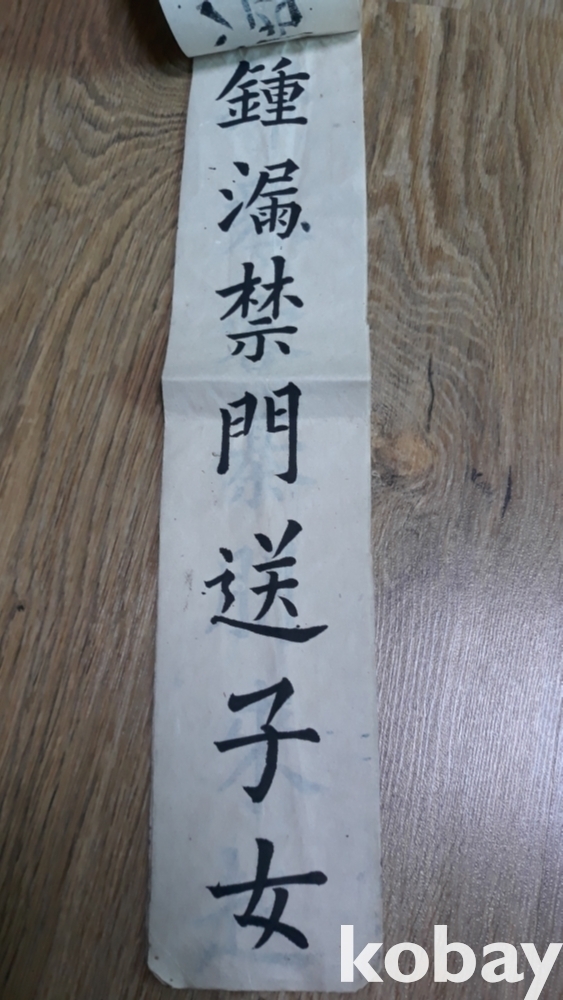 鍾漏禁門送子女
kobay